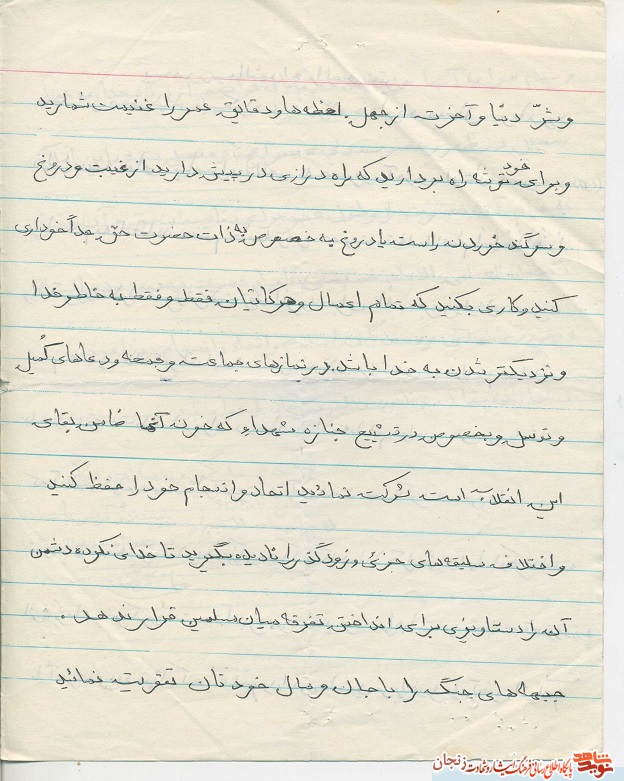 و شرّ دنیا و آخرت از جهل. لحظه ها و دقایق عمر را غنیمت شمارید
و برای خود توشه راه بردارید که راه درازی در پیش دارید از غیبت و دروغ
و سوگند خوردن راست یا دروغ به خصوص به ذات حضرت حق جداً خودداری
کنید و کاری بکنید که تمام اعمال و حرکاتتان فقط و فقط به خاطر خدا
و نزدیکتر شدن به خدا باشد. در نمازهای جماعت و جمعه و دعاهای کُمیل
و توسل و بخصوص در تشییع جنازه شهداء که خون آنها ضامن بقای
این انقلاب است شرکت نمائید اتحاد و انسجام خود را حفظ کنید
و اختلاف سلیقه های جزئی و زودگذر را نادیده بگیرید تا خدای نکرده دشمن
آن را دستاویزی برای انداختن تفرقه میان مسلمین قرار ندهد.
جبهه های جنگ را با جان و مال خودتان تقویت نمائید
نوید شاهد پایگاه اطلاع رسانی فرهنگ ایثار و شهادت زنجان